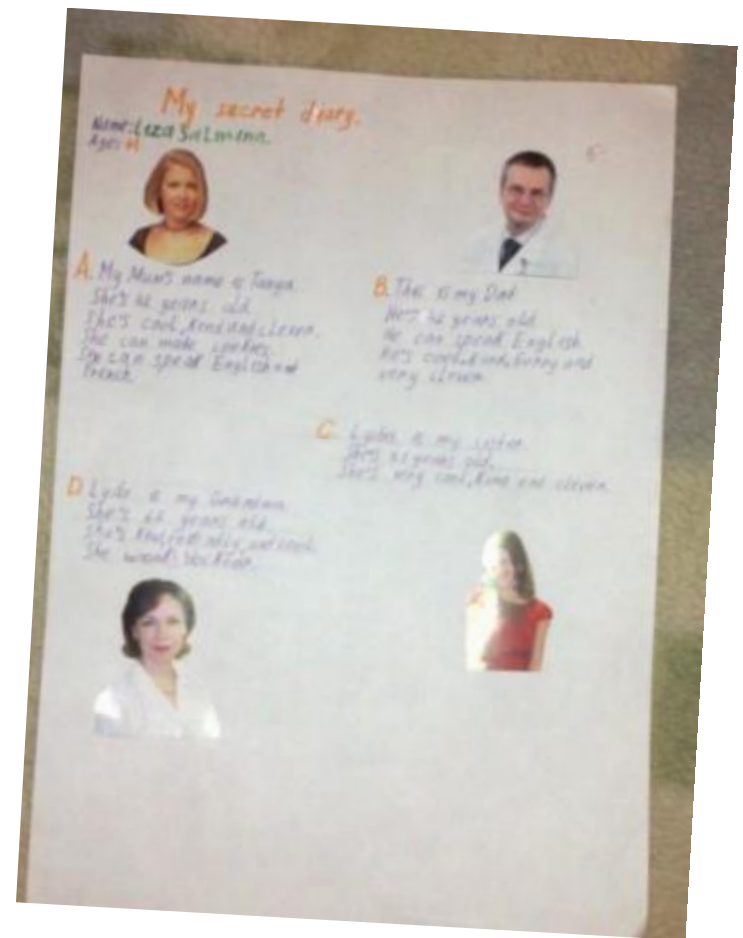 My secret diary.
Name: Leza Salmann.
Age:
A. My Mum's name is Tanya.
She's 42 years old.
She's cool, kind and clever.
She can make
She can speak English and
French.
B. This is my Dad
He's 42 years old
He can speak English.
He's cool, kind, funny and
very clever
C is my sister.
She's years old.
She's very cool, kind and clever.
D. Lyda is my Grandma
She's 62 years old.
She's kind, and cool.
She